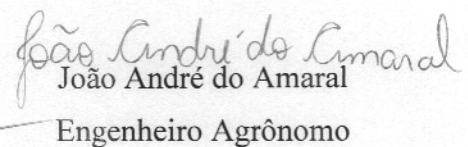 João André do Amaral
João André do Amaral
Engenheiro Agrônomo